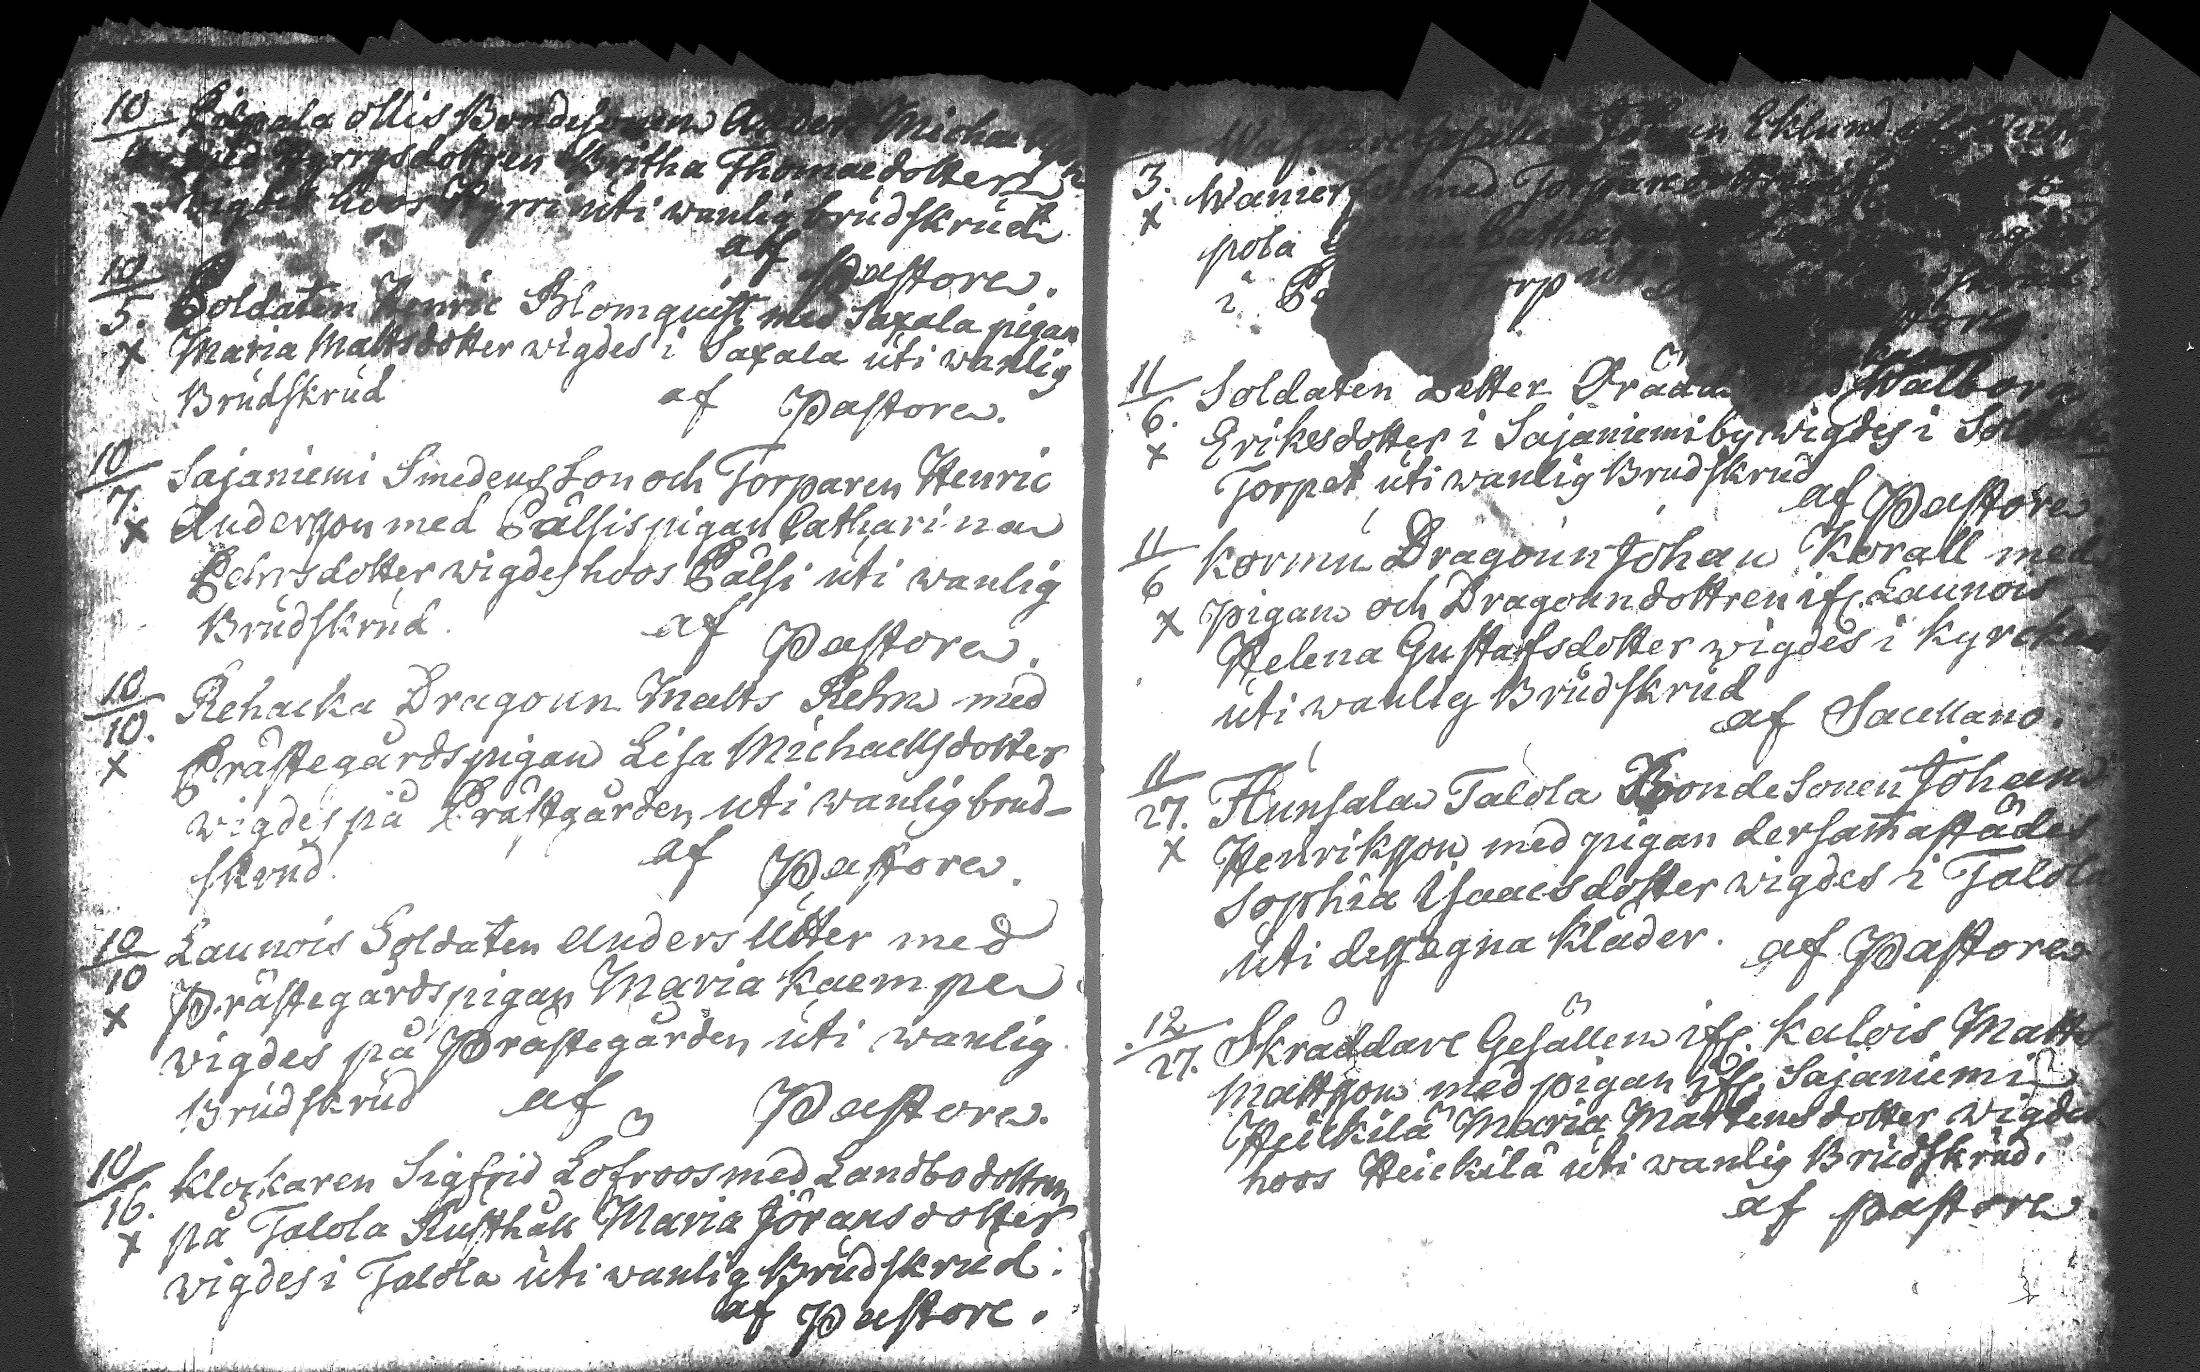 10 Ollis Bondesonen Michaelsson
med Kyrrysdottren Britha Thomaedotter
wigdes hoos Kyrri uti wanlig brudskrud
af Pastore.
10/5. x Soldaten Henric Blomquist med Saxala pigan
Maria Mattsdotter wigdes i Saxala uti wanlig
Brudskrud af Pastore.
10/7. x Sajaniemi Smedens Son och Torparen Henric
Andersson med Pälsis pigan Catharina
Pehrsdotter wigdes hoos Pälsi uti wanlig
Brudskrud. af Pastore.
10/10. x Rehacka Dragoun Matts Rehn med
Prästegårds pigan Lisa Michaellsdotter
wigdes på Prästgården uti wanlig brud-
skrud. af Pastore.
10/10 x Launois Soldaten Anders Utter med
Prästegårds pigan Maria Kaempe
wigdes på Prästegården uti wanlig
Brudskrud af Pastore.
10/16. x Klockaren Sigfrid Löfroos med Landbodottren
på Talola Rusthåll Maria Jöransdotter
wigdes i Talola uti wanlig Brudskrud:
af Pastore.
Eklund
3. x med
pola Anna
i Torp
11/6. x Soldaten Petter Walborg
Eriksdotter i Sajaniemi by wigdes i
Torpet uti wanlig Brudskrud
af Pastore.
11/6 x Kormu Dragoun Johan Korall med
pigan och Dragoundottren ifr. Launois
Helena Gustafsdotter wigdes i Kyrckan
uti wanlig Brudskrud
af Sacellano.
11/27. x Hunsala Talola Bondesonen Johan
Henriksson med pigan dersammastädes
Sophia Ysaacsdotter wigdes i Talola
uti dess egna Kläder. af Pastore
12/27. Skräddare Gesällen ifr. Kalois Matts
Mattsson med pigan ifr. Sajaniemi
Heickilä Maria Mårtensdotter wigdes
hoos Heickilä uti wanlig Brudskrud.
af Pastore.